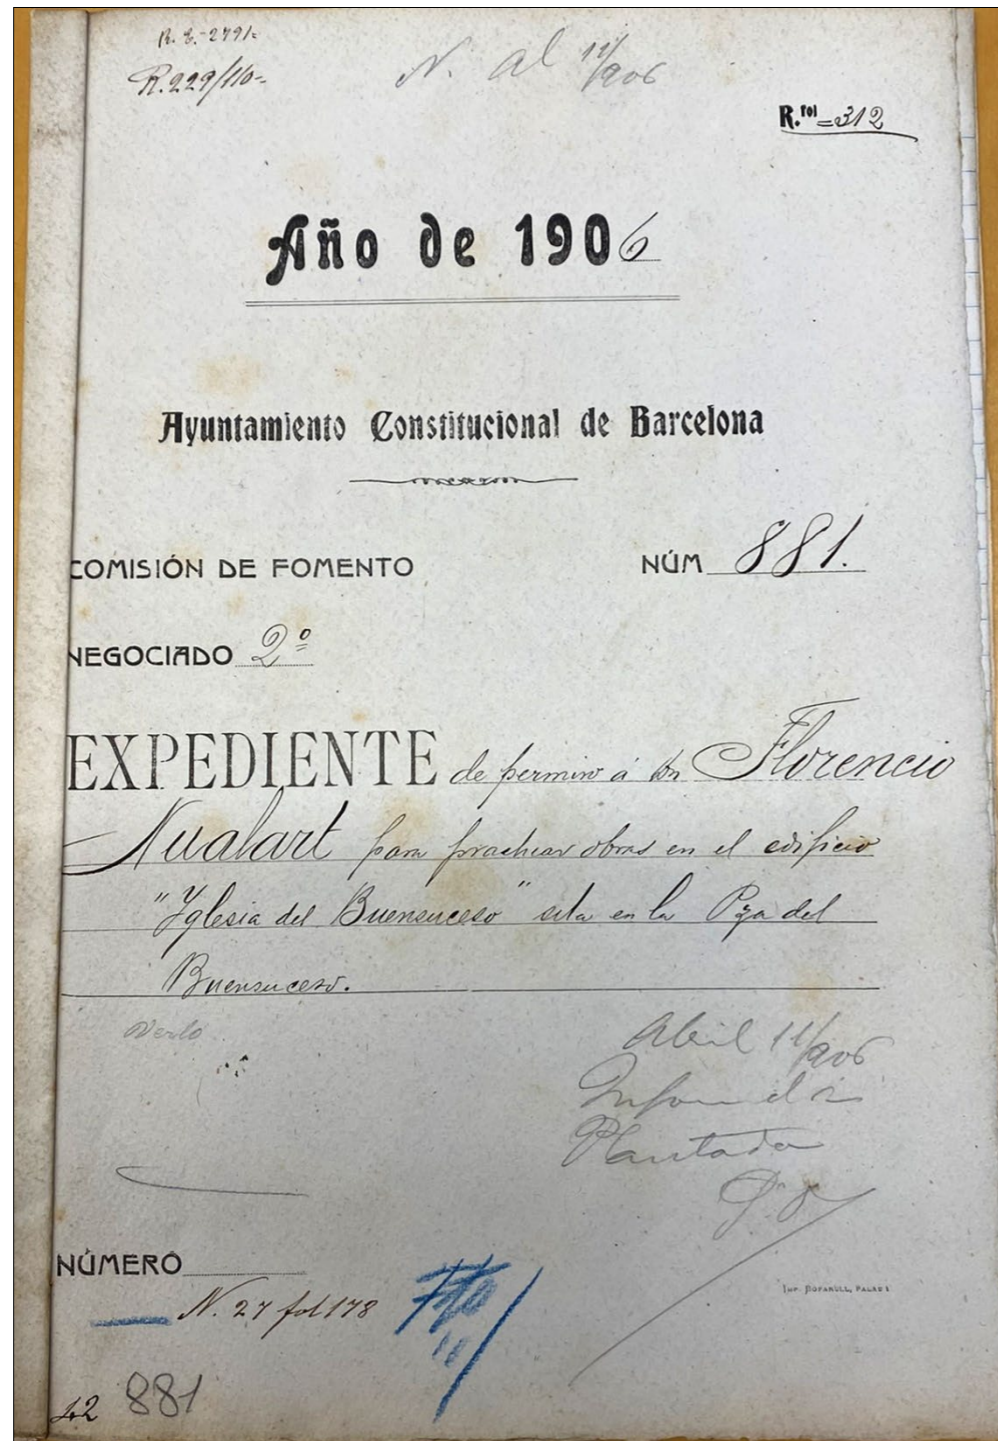 R. E. 2791=
R. 229/110=
N. al 11/906
R.tol = 312
Año de 1906
Ayuntamiento Constitucional de Barcelona
COMISIÓN DE FOMENTO NÚM 881.
NEGOCIADO 2º
EXPEDIENTE de permiso á Dn Florencio
Nualart para practicar obras en el edificio
"Yglesia del Buensuceso" sita en la Pza del
Buensuceso.
Abril 11/906
Plantada
NÚMERO
N. 27 fol 178
IMP. BOFARULL, PALAU 1
42 881